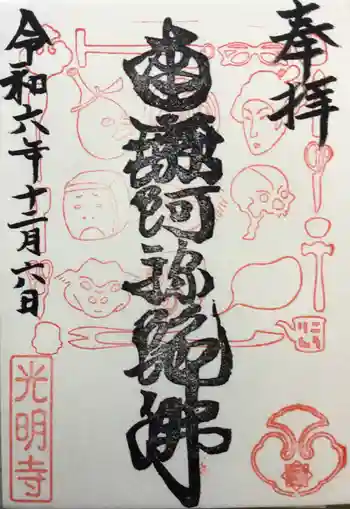 奉拝
南無阿弥陀佛
令和六年十二月六日
光明寺